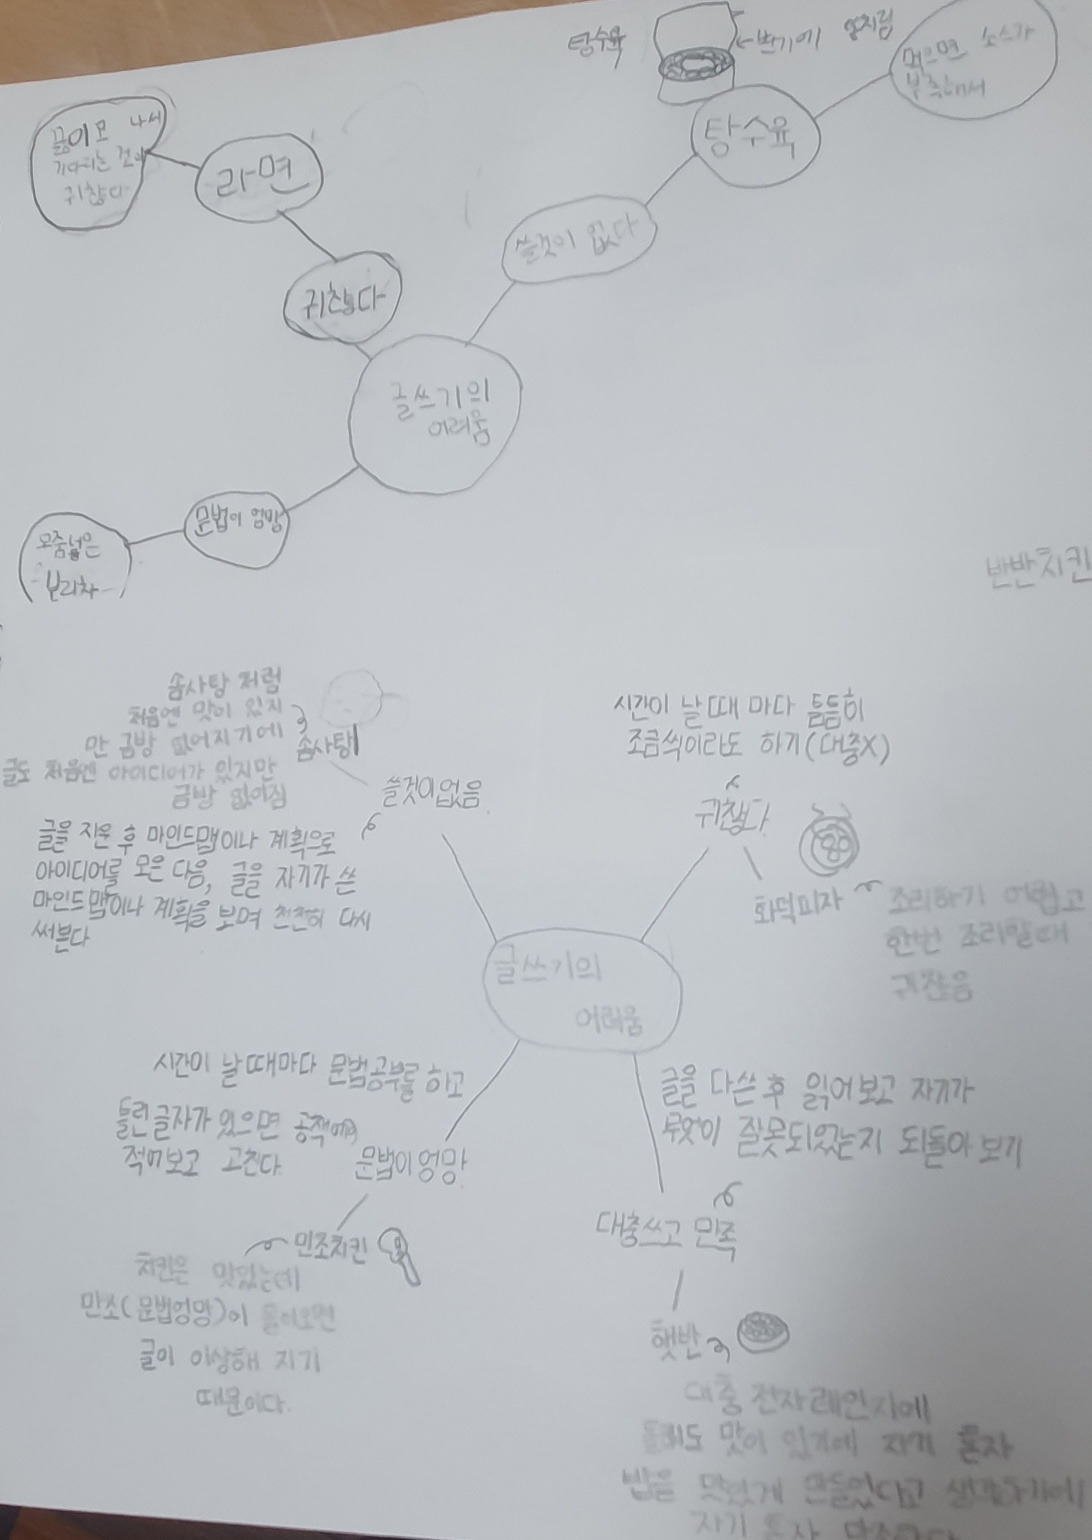 탕수육
먹으면 소스가
부족해서
탕수육
라면
귀찮다
쓸것이 없다
귀찮다
글쓰기의
어려움
문법이 엉망
오줌넣은
보리차
반반치킨
솜사탕 처럼
처음엔 맛이 있지
만 금방 없어지기에
솜사탕
글도 처음엔 아이디어가 있지만
금방 없어짐
쓸것이없음
글을 지운 후 마인드맵이나 계획으로
아이디어를 모은 다음, 글을 자기가 쓴
마인드맵이나 계획을 보며 천천히 다시
써본다
시간이 날 때 마다 틈틈히
조금씩이라도 하기(대충X)
귀찮다
화덕피자
조리하기 어렵고
한번 조리할때
귀찮음
글쓰기의
어려움
시간이 날 때마다 문법공부를 하고
틀린글자가 있으면 공책에
적어보고 고친다.
문법이엉망
민초치킨
치킨은 맛있는데
민초(문법엉망)이 들어오면
글이 이상해 지기
때문이다.
글을 다쓴 후 읽어보고 자기가
무엇이 잘못되었는지 되돌아 보기
대충쓰고 만족
햇반
대충 전자레인지에
돌려도 맛이 있기에 자기 혼자
밥을 맛있게 만들었다고 생각하기에
자기 혼자